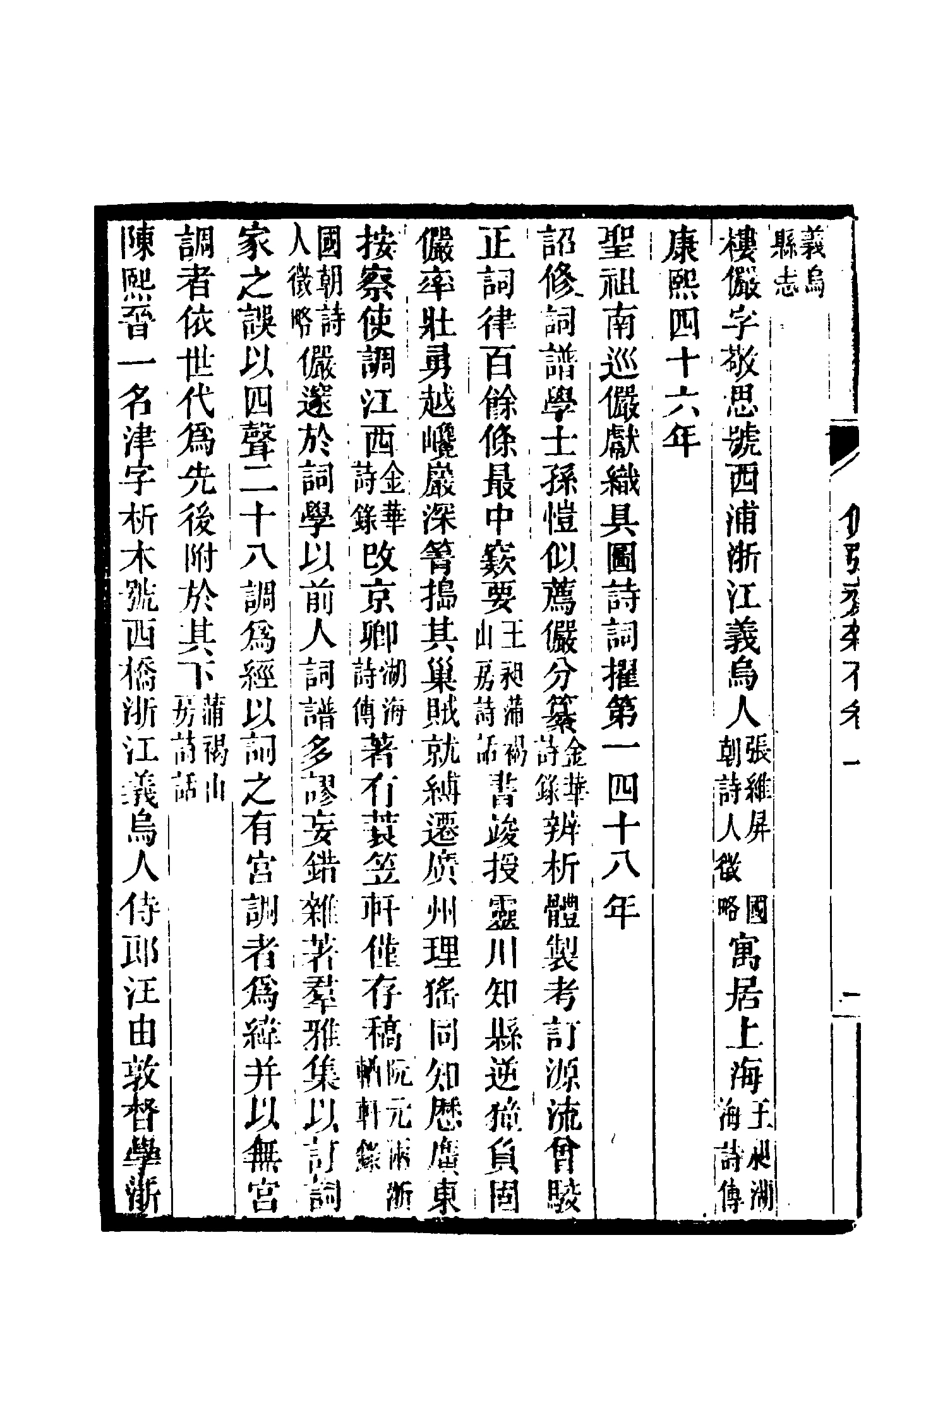 義烏縣志
樓儼字敬思號西浦浙江義烏人張維屏國朝詩人徵略寓居上海王昶湖海詩傳
康熙四十六年
聖祖南巡儼獻織具圖詩詞擢第一四十八年
詔修詞譜學士孫愷似薦儼分纂金華詩錄辨析體製考訂源流曾駁
正詞律百餘條最中窾要王昶蒲褐山房詩話書竣授靈川知縣逆猺負固
儼率壯勇越巉巖深箐搗其巢賊就縛遷廣州理猺同知歷廣東
按察使調江西金華詩錄改京卿湖海詩傳著有蓑笠軒僅存稿阮元兩浙輶軒錄
國朝詩人徵略儼邃於詞學以前人詞譜多謬妄錯雜著羣雅集以訂詞
家之誤以四聲二十八調爲經以詞之有宮調者爲緯并以無宮
調者依世代爲先後附於其下蒲褐山房詩話
陳熙晉一名津字析木號西橋浙江義烏人侍郎汪由敦督學浙